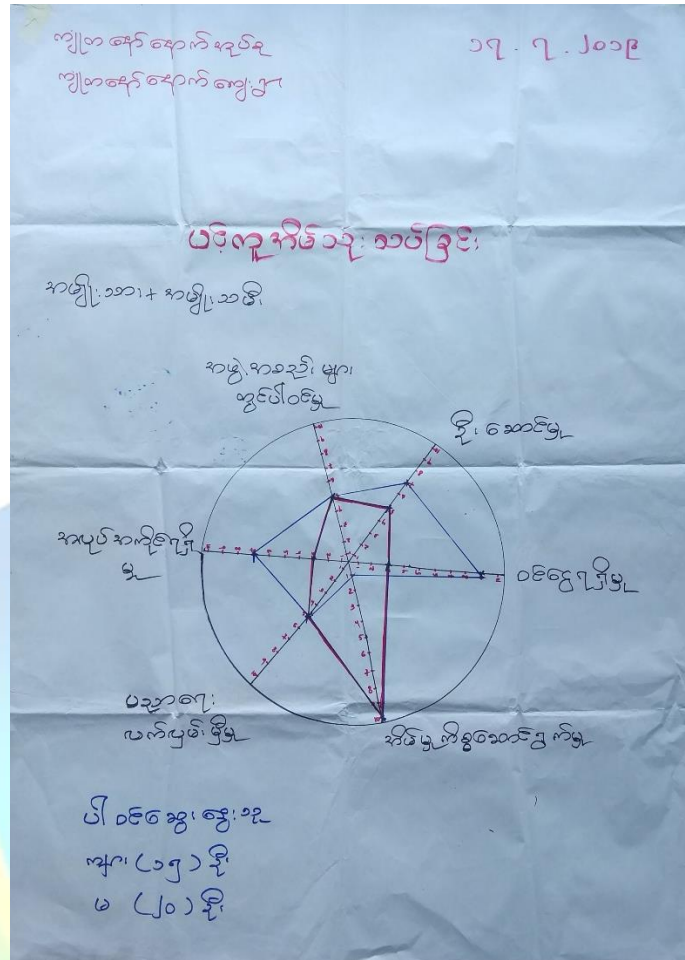 ကျုတနော်နောက်အုပ်စု
၁၇.၇.၂၀၁၉
ကျုတနော်နောက်ကျေးရွာ
ပင့်ကူအိမ်သုံးသပ်ခြင်း
အမျိုးသား + အမျိုးသမီး
အဖွဲ့အစည်းများ
တွင်ပါဝင်မှု
ဦးဆောင်မှု
အလုပ်အကိုင်ရရှိ
မှု
ဝင်ငွေရရှိမှု
ပညာရေး
လက်လှမ်းမှီမှု
အိမ်မှုကိစ္စဆောင်ရွက်မှု
ပါဝင်ဆွေးနွေးသူ
ကျား (၁၅) ဦး
မ (၂၀) ဦး